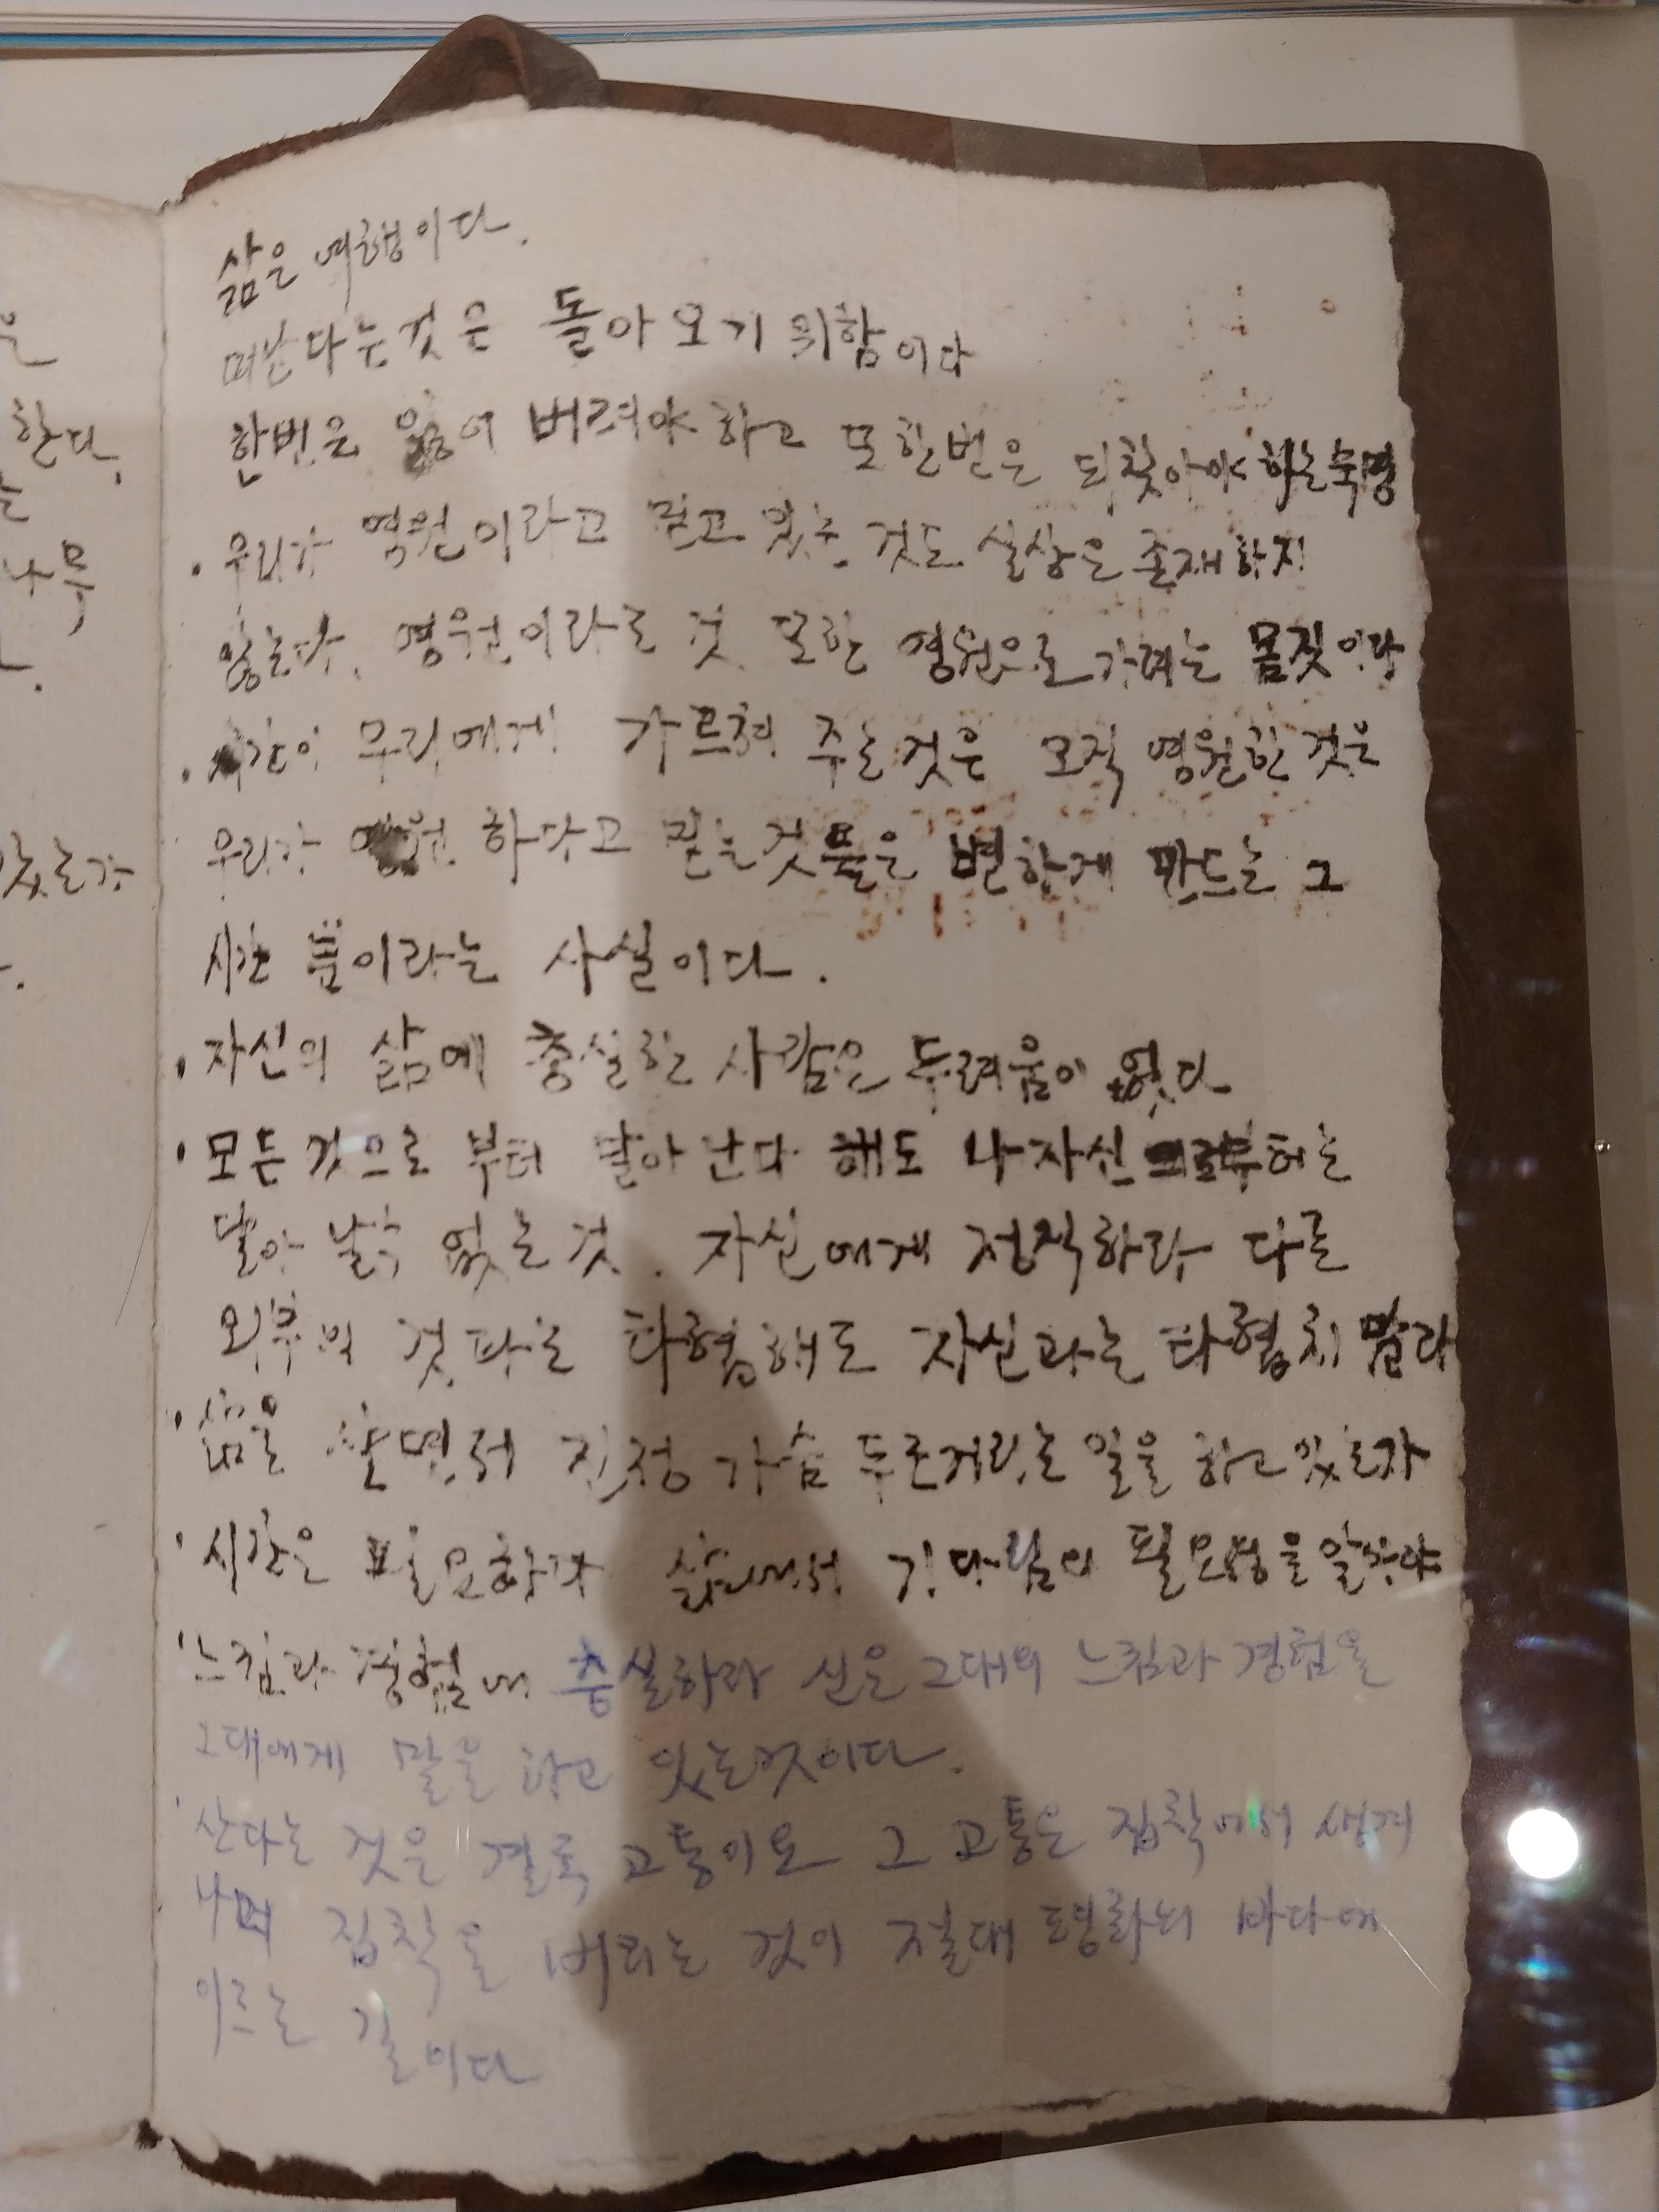 삶은 여행이다.
떠난다는것은 돌아오기 위함이다
한번은 잃어 버려야 하고 또한번은 되찾아야 하는 숙명
· 우리가 영원이라고 믿고 있는 것도 실상은 존재하지
않는다. 영원이라는 것 또한 영원으로 가려는 몸짓이다
· 시간이 우리에게 가르쳐 주는것은 오직 영원한 것은
우리가 영원 하다고 믿는것들은 변하게 만드는 그
시간 뿐이라는 사실이다.
· 자신의 삶에 충실한 사람은 두려움이 없다
· 모든것으로 부터 달아 난다 해도 나자신으로부터는
달아 날수 없는것. 자신에게 정직하라 다른
외부의 것과는 타협해도 자신과는 타협치 말라
· 삶을 살면서 진정 가슴 두근거리는 일을 하고 있는가
· 시간은 필요하다 삶에서 기다림의 필요성을 알아야
· 느낌과 경험에 충실하라 신은 그대의 느낌과 경험을
그대에게 말을 하고 있는것이다.
· 산다는 것은 결국 고통이요 그 고통은 집착에서 생겨
나며 집착을 버리는 것이 절대 평화의 바다에
이르는 길이다
은
한다.
나무
있는가